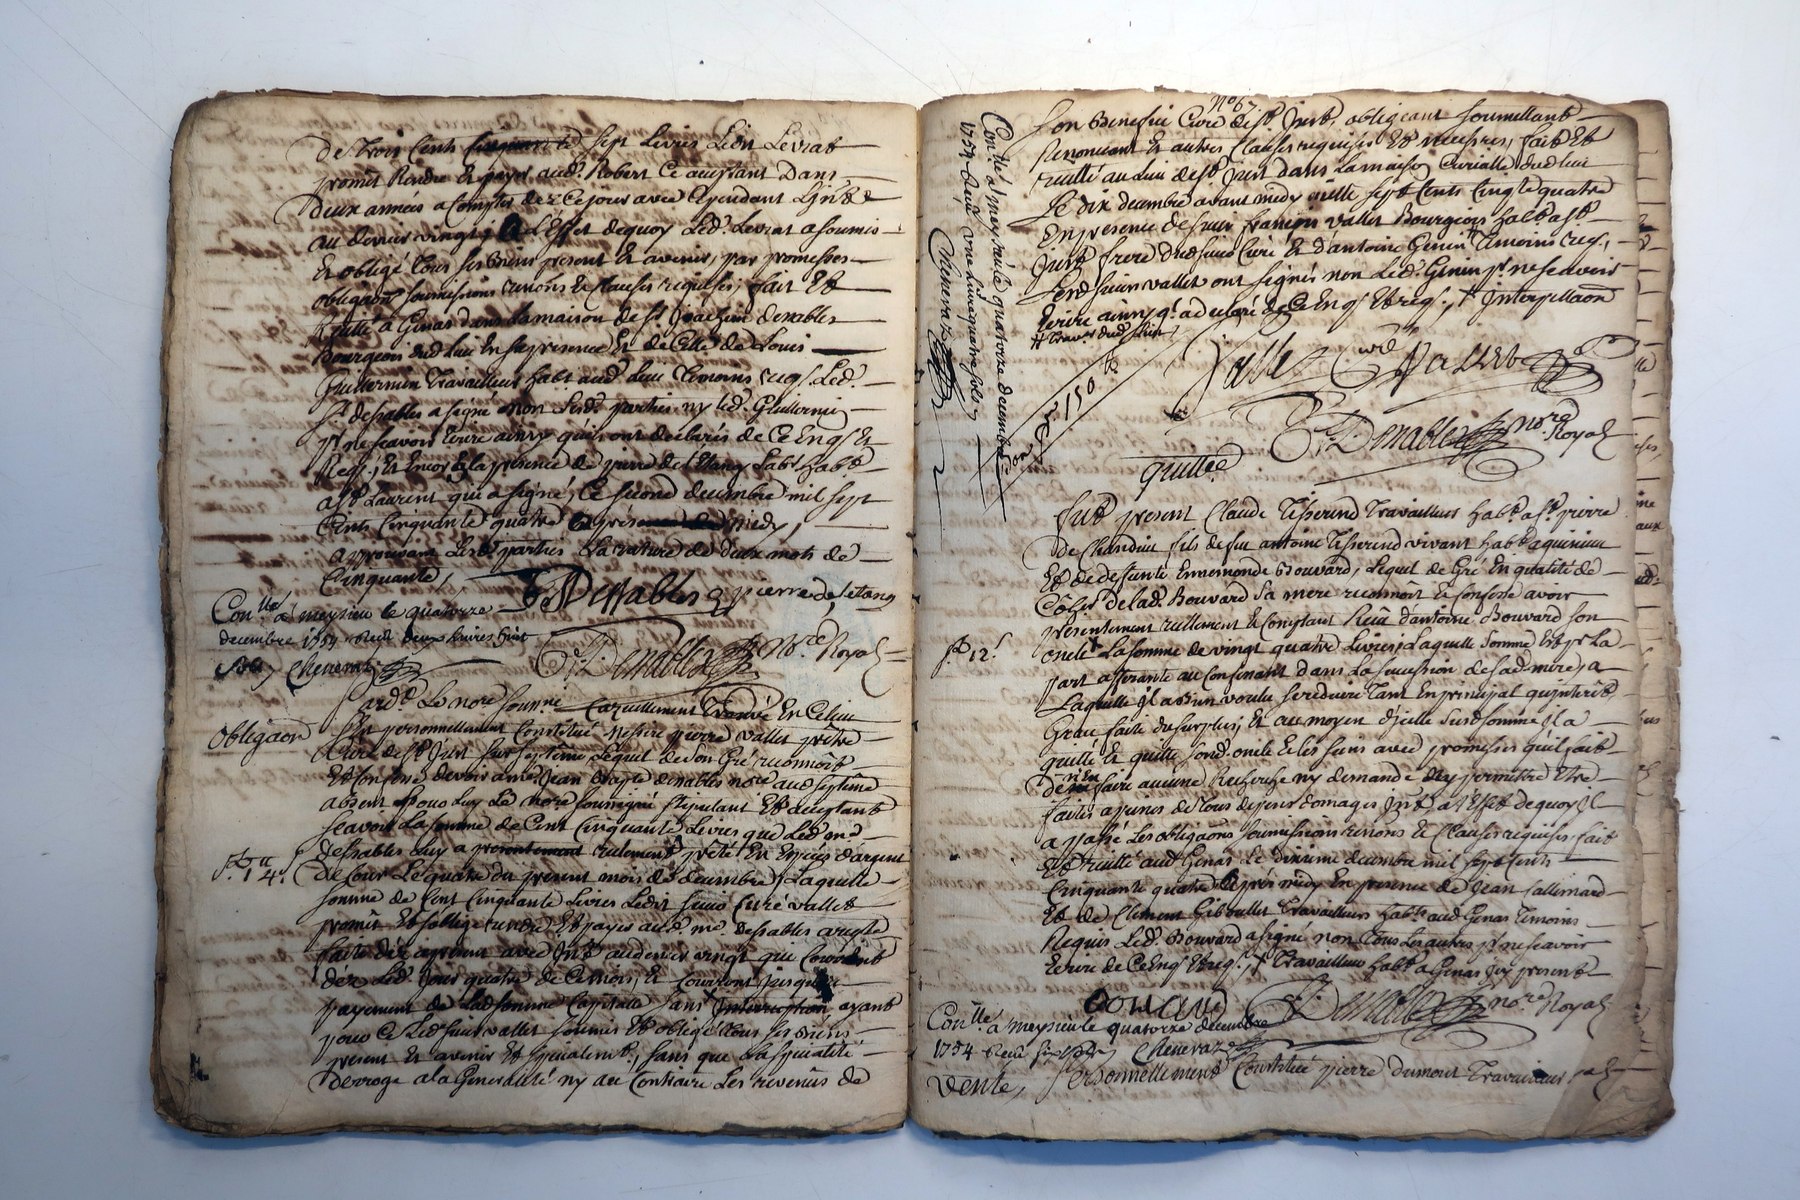 de trois Cents cinquante sept Livres Léon Levrat
promit Rendre et payer aud. Robert Ce acceptant dans
deux années a Compter de Ce jour avec Cependant L'int.
au denier vingt; a L'Effet dequoy Led. Levrat a soumis
Et obligé tous ses Biens present et avenir, par promesses
obligaons soumissions renons et Clauses requises, fait Et
Recitté a Genas dans La maison de Sr Joachim desrables
Bourgeois dud lieu En sa presence Et de Celle de Louis
Guillermin travailleur habt aud. lieu temoins reqs. Led.
Sr desrables a signé non Lesd. parties ny led. Guillermin
pr ne scavoir Ecrire ainsy qu'ils ont declarés de Ce Enqs Et
Reqs, Et Encor a la presence de pierre de l'Etang Labr habt
a St Laurent qui a signé, Ce second decembre mil sept
Cents Cinquante quatre apres midy,
approuvant Lesd. parties La rature de deux mots de
Cinquante,
Dessables pierre de letang
Conllé a meysieu le quatorze
decembre 1754 Recu deux Livres huit
sols Chenevaz
Denablex Nore Royal
pard. Le nore sousné
Obligaon
fut personnellement Constitué Messire pierre vallet prêtre
Curé de St Just Lequel de son Gré reconnoit
Et Confesse devoir a me Jean nore aud
absent Nous Luy Le nore soussigné stipulant Et acceptant
scavoir La somme de Cent Cinquante Livres que Led. me
Dessables Luy a presentement reelement prêté En Especes d'argent
de Cour Le quatre du present mois de decembre, Laquelle
somme de Cent Cinquante Livres Ledit sieur Curé vallet
promit Et s'oblige rendre Et payer aud. me Dessables
avec Int au denier vingt qui Couroient
déz Led. jour quatre de Ce mois, et Couriront jusqu'au
payement de Lad. somme Capitalle sans Interruption, ayant
pour Ce Led. sieur vallet soumis Et obligé tous ses Biens
present Et avenir Et spécialemt, sans que La spécialité
derroge a la Generalité ny au Contraire Les revenus de
No 67
son Benefice Curé de St Just, obligeant soumettant
Renoncant Et autres Clauses requises Et necessres, fait Et
recitté au lieu de St Just dans La maison Curialle dud lieu
Le dix decembre avant midy mille sept Cents Cinqte quatre
En presence de sieur françois vallet Bourgeois habt a St
Just frere dud sieur Curé Et d'antoine Genin temoins reqs,
Lesd sieurs vallet ont signés non Led. Genin pr ne scavoir
Ecrire ainsy q'. a declaré de Ce Enqs Et reqs, + Interpellaon
Conllé a meysieu le quatorze decembre
1754 Recu une Livre quatre sols
Chenevaz
150
Vallet Curé Vallet
Denablex nore Royal
Quittce
fut present Claude Tisserand travailleur habt a St pierre
de Chandieu fils de feu antoine Tisserand vivant habt
Et de deffunte Ennemonde Bouvard, Lequel de Gré En qualité de
de Lad. Bouvard sa mere reconnoit Et Confesse avoir
presentement reellement Et Comptant Recu d'antoine Bouvard son
oncle La somme de vingt quatre Livres, Laquelle somme Est pr La
part afferante au Confessant dans La succession de sad. mere, a
Laquelle il a Bien voulu se reduire tant En principal qu'interêts,
Grace faite du surplus; Et au moyen d'icelle susd somme il a
quitté Et quitte sond. oncle Et les siens avec promesses qu'il fait
de n'en faire aucune Recherche ny demande Ny permettre Etre
faites a peines de tous depens domages Int a L'Effet dequoy il
a passé Les obligaons soumissions renions Et Clauses requises fait
Et recitté aud Genas Le dixieme decembre mil sept cents
Cinquante quatre apres midy En presence de Jean sallemard
Et de Clement travailleurs habts aud Genas temoins
Requis Led. Bouvard a signé non tous Les autres pr ne scavoir
Ecrire de Ce Enqs Et reqs + travailleur habt a Genas Icy present
Denablex nore Royal
Conllé a meysieu le quatorze decembre
1754 Recu six sols Chenevaz
Vente,
Personnellement Constitué pierre dumont travailleur